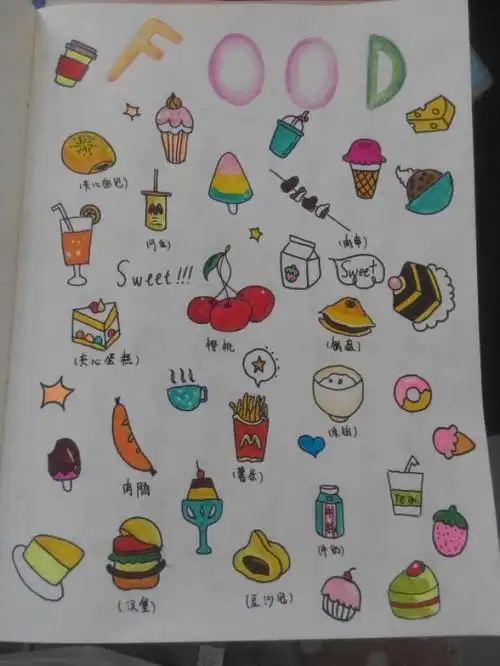 FOOD
(夹心面包)
(肉串)
Sweet!!!
Sweet
(夹心蛋糕)
樱桃
M
(薯条)
肉肠
TEA
牛奶
(牛奶)
(汉堡)
(豆沙包)